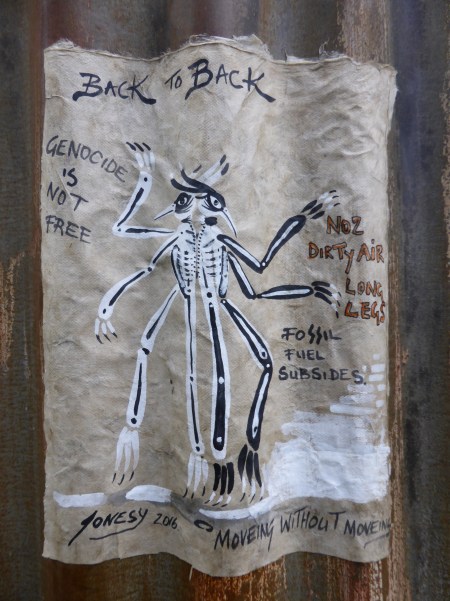 BACK TO BACK
GENOCIDE
IS
NOT
FREE
NO2
DIRTY AIR
LONG
LEGS
FOSSIL
FUEL
SUBSIDES.
JONESY 2016
MOVEING WITHOUT MOVEING